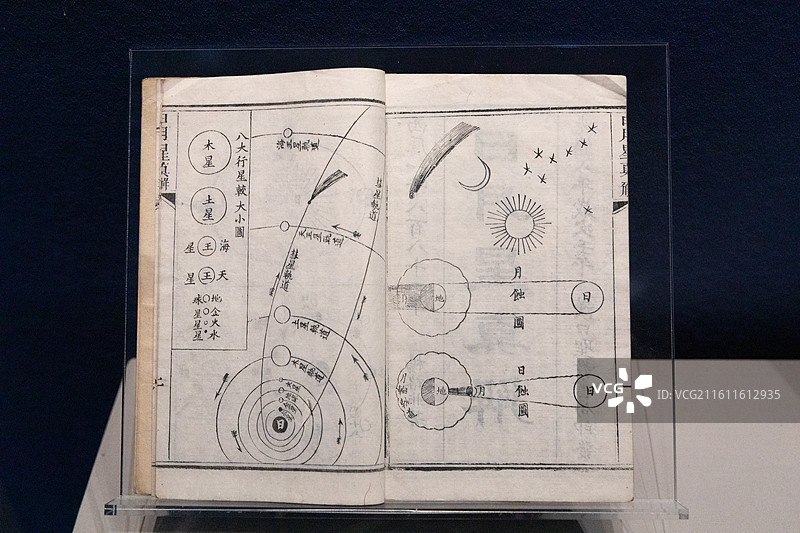 日月星真解
月蝕圖
日
地
日蝕圖
日
月
地
彗星軌道
海王星軌道
天王星軌道
彗星軌道
土星軌道
木星軌道
火星
地球
日
八大行星較大小圖
木星
土星
海王星
天王星
地球
金星
火星
水星
日月星真解
VCG
VCG211611612935